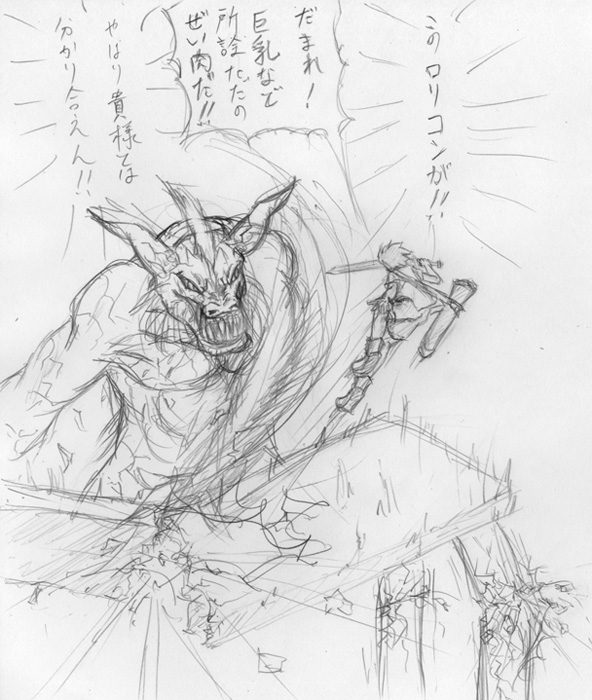 このロリコンが!!
だまれ!
巨乳など
所詮ただの
ぜい肉だ!!
やはり貴様とは
分かり合えん!!